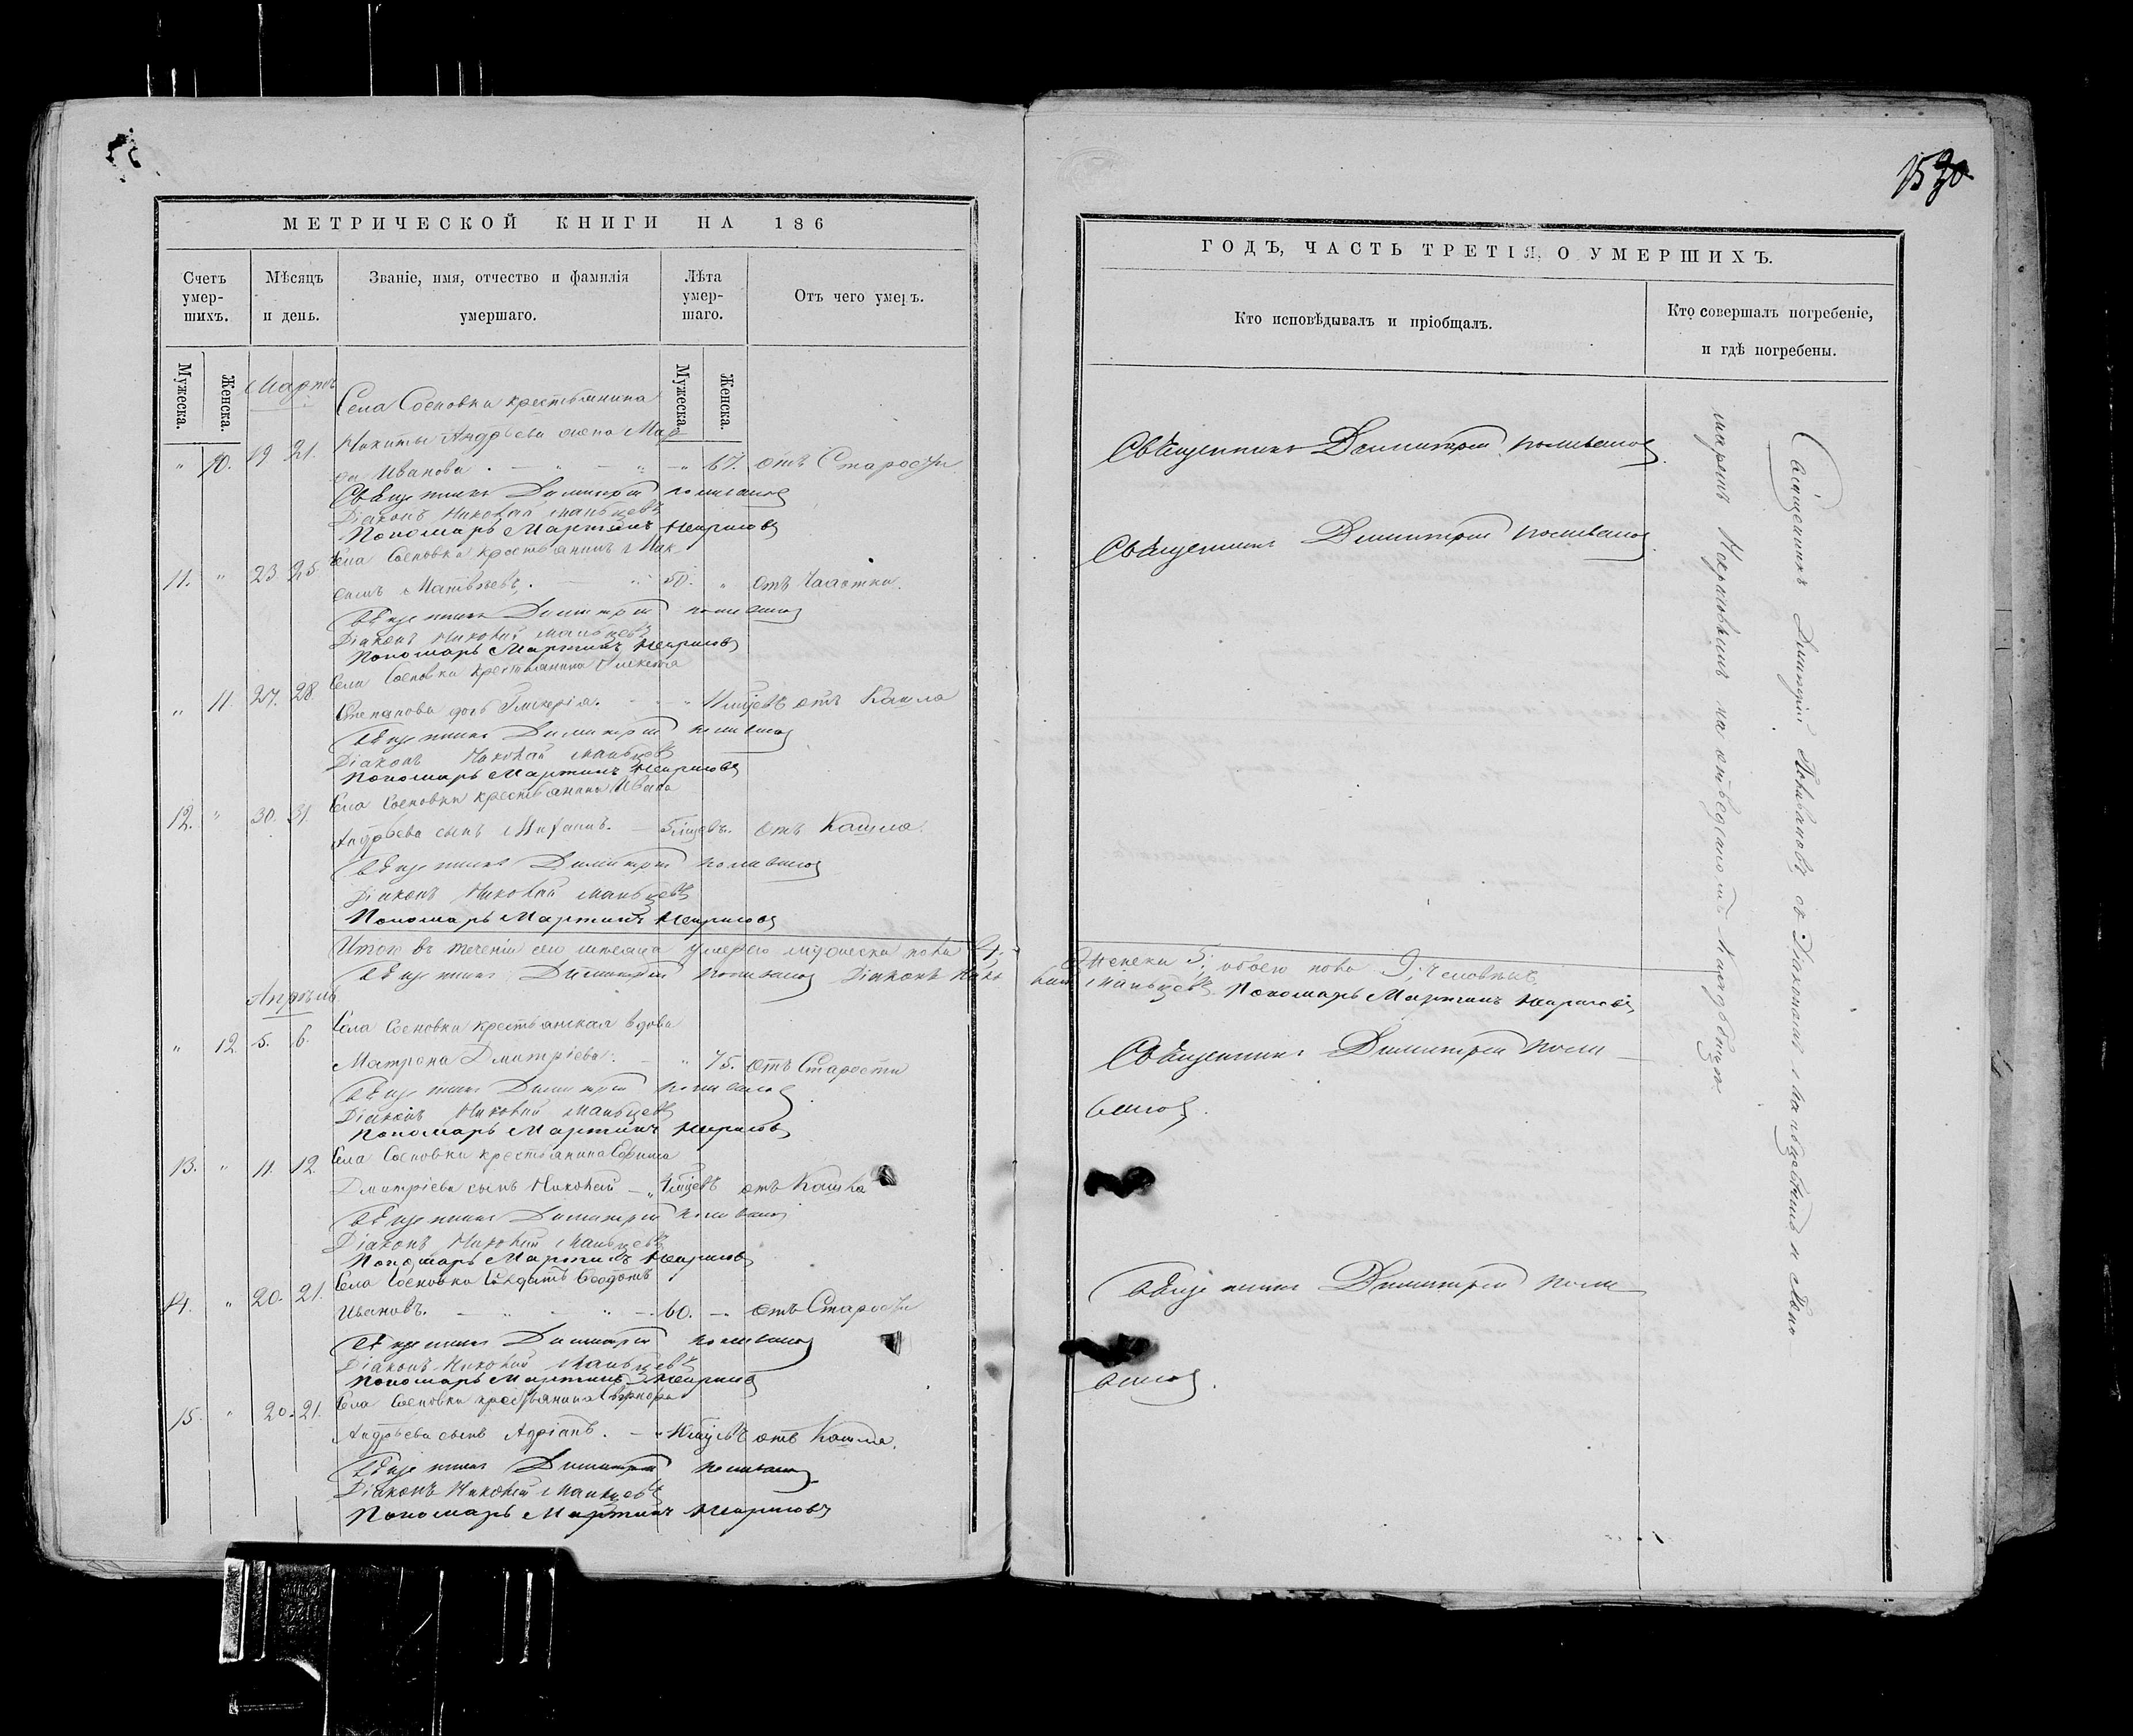 МЕТРИЧЕСКОЙ КНИГИ НА 186
Счетъ умер-шихъ.
Мѣсяцъ и день.
Званіе, имя, отчество и фамилія умершаго.
Лѣта умер-шаго.
Отъ чего умеръ.
Мужеска.
Женска.
Мужеска.
Женска.
Мартъ
Села Сосновки крестьянина
Никиты Андрѣева жена Мар
" 10. 19 21. Иванова. — " — " — " 67. отъ Старости
Священникъ Димитрій Поливановъ
Діаконъ Николай Мальцевъ
Пономарь Мартинъ Неириновъ
Села Сосновки крестьянинъ Мак
11. " 23 25. симъ Матвѣевъ. — " 50. " отъ Чахотки.
Священникъ Димитрій Поливановъ
Діаконъ Николай Мальцевъ
Пономарь Мартинъ
Села Сосновки крестьянина Алексѣя
" 11. 27. 28. Степанова дочь Гликерія. — " 11 мѣсяц. отъ Кашля
Священникъ Димитрій Поливановъ
Діаконъ Николай Мальцевъ
Пономарь Мартинъ
Села Сосновки крестьянина Ивана
12. " 30. 31. Андрѣева сынъ Михаилъ. — 5 мѣсяцевъ. отъ Кашля.
Священникъ Димитрій Поливановъ
Діаконъ Николай Мальцевъ
Пономарь Мартинъ
Итого въ теченіи сего мѣсяца умерло мужеска пола 4;
Священникъ Димитрій Поливановъ Діаконъ Нико
Апрѣль
Села Сосновки крестьянская вдова
" 12. 5. 6. Матрона Дмитріева. — " 75. отъ Старости
Священникъ Димитрій Поливановъ
Діаконъ Николай Мальцевъ
Пономарь Мартинъ
Села Сосновки крестьянина Ефима
13. " 11. 12. Дмитріева сынъ Николай — " отъ Кашля
Священникъ Димитрій Поливановъ
Діаконъ Николай Мальцевъ
Пономарь Мартинъ
Села Сосновки Солдатъ Ѳеодотъ
14. " 20. 21. Ивановъ. — " — " — 60. — отъ Старости
Священникъ Димитрій Поливановъ
Діаконъ Николай Мальцевъ
Пономарь Мартинъ
Села Сосновки крестьянина
15. " 20. 21. Андрѣева сынъ Адріанъ. — " отъ Кашля.
Священникъ Димитрій Поливановъ
Діаконъ Николай Мальцевъ
Пономарь Мартинъ
ГОДЪ, ЧАСТЬ ТРЕТІЯ, О УМЕРШИХЪ.
Кто исповѣдывалъ и пріобщалъ.
Кто совершалъ погребеніе, и гдѣ погребены.
Священникъ Димитрій Поливановъ
Священникъ Димитрій Поливановъ
Женска 5; обоего пола 9; человѣкъ
лай Мальцевъ Пономарь Мартинъ
Священникъ Димитрій Поли
вановъ.
Священникъ Димитрій Поли
вановъ.
Священникъ Димитрій Поливановъ съ Діакономъ Мальцевымъ и Поно
маремъ на отведенномъ Кладбищѣ